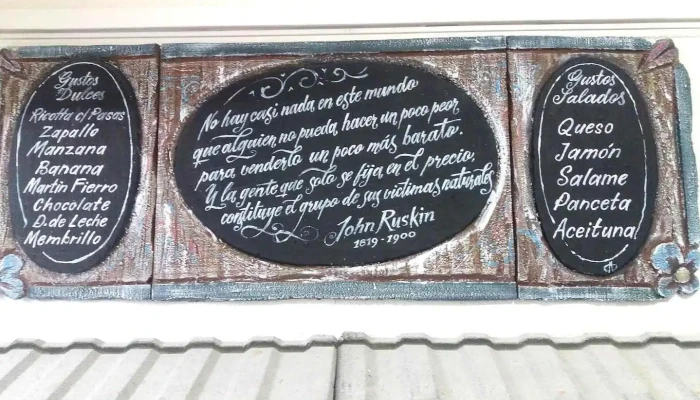 Gustos
Dulces
Ricotta c/ Pasas
Zapallo
Manzana
Banana
Martín Fierro
Chocolate
D. de Leche
Membrillo
No hay casi nada en este mundo
que alguien no pueda hacer un poco peor
para venderlo un poco más barato.
Y la gente que solo se fija en el precio,
constituye el grupo de sus víctimas naturales
John Ruskin
1819 - 1900
Gustos
Salados
Queso
Jamón
Salame
Panceta
Aceituna